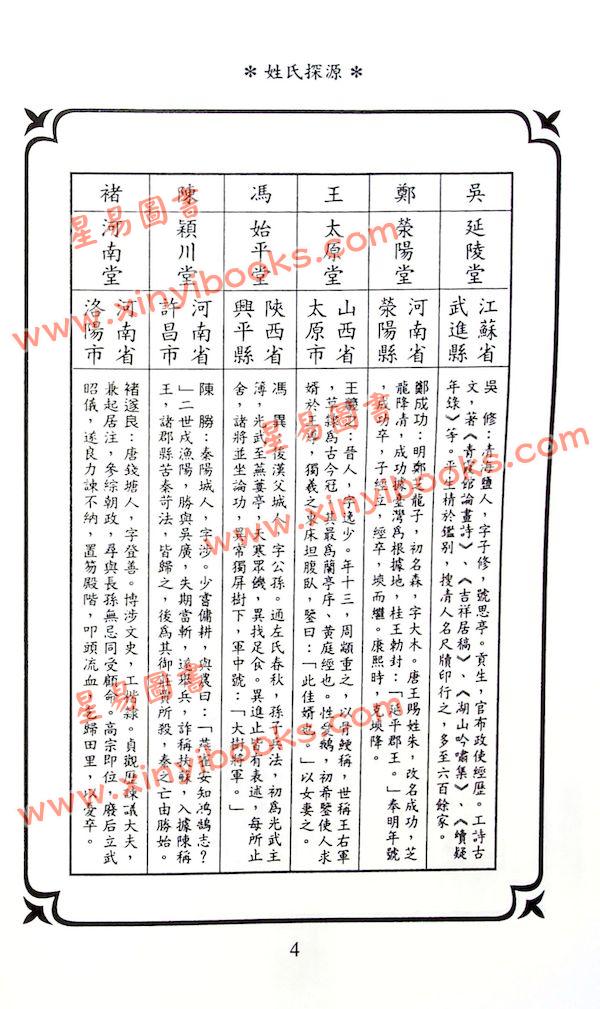 ＊姓氏探源＊
吳
延陵堂
江蘇省
武進縣
吳　修：清海鹽人，字子修，號思亭。貢生，官布政使經歷。工詩古
文，著《青霞館論畫詩》、《吉祥居稿》、《湖山吟嘯集》、《續疑
年錄》等。平生精於鑑別，搜清人名尺牘印行之，多至六百餘家。
鄭
滎陽堂
河南省
滎陽縣
鄭成功：明鄭芝龍子，初名森，字大木。唐王賜姓朱，改名成功，芝
龍降清，成功據臺灣為根據地，桂王勅封：「延平郡王。」奉明年號
，成功卒，子經立，經卒，塽而繼。康熙時，克塽降。
王
太原堂
山西省
太原市
王羲之：晉人，字逸少。年十三，周顗重之，以骨鯁稱，世稱王右軍
，草隸為古今冠，其最為蘭亭序、黃庭經也。性愛鵝，初希鑒使人求
婿於王導，獨羲之東床坦腹臥，鑒曰：「此佳婿也。」以女妻之。
馮
始平堂
陝西省
興平縣
馮　異：後漢父城人，字公孫。通左氏春秋，孫子兵法，初為光武主
溥，光武至蕪蔞亭，大寒眾饑，異找足食。異進止皆有表述，每所止
舍，諸將並坐論功，異常獨屏樹下，軍中號：「大樹將軍。」
陳
穎川堂
河南省
許昌市
陳　勝：秦陽城人，字涉。少嘗傭耕，與農曰：「燕雀安知鴻鵠志？
」二世戍漁陽，勝與吳廣，失期當斬，遂率兵，詐稱扶蘇，入據陳稱
王，諸郡縣苦秦苛法，皆歸之，後為其御莊賈所殺，秦之亡由勝始。
褚
河南堂
河南省
洛陽市
褚遂良：唐錢塘人，字登善。博涉文史，工楷隸。貞觀歷諫議大夫，
兼起居注，參綜朝政，尋與長孫無忌同受顧命。高宗即位，廢后立武
昭儀，遂良力諫不納，置笏殿階，叩頭流血，乞歸田里，以憂卒。
4
星易圖書
www.xinyibooks.com
星易圖書
www.xinyibooks.com
星易圖書
www.xinyibooks.com